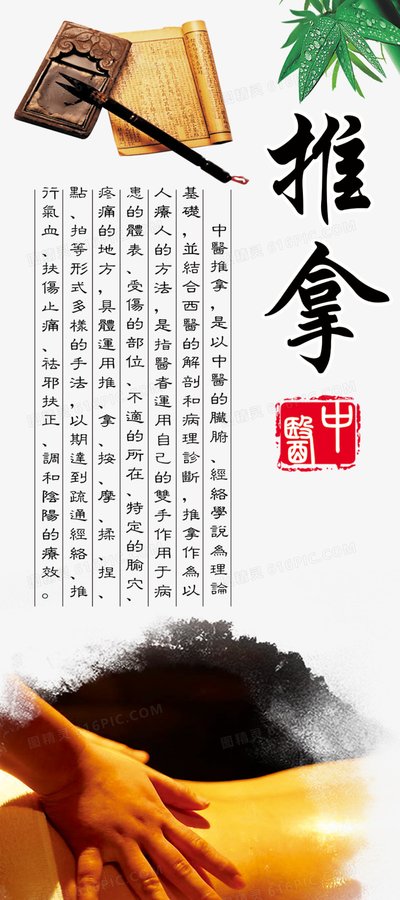 推拿
中醫
中醫推拿，是以中醫的臟腑、經絡學說為理論
基礎，並結合西醫的解剖和病理診斷，推拿作為以
人療人的方法，是指醫者運用自己的雙手作用于病
患的體表、受傷的部位、不適的所在、特定的腧穴、
疼痛的地方，具體運用推、拿、按、摩、揉、捏、
點、拍等形式多樣的手法，以期達到疏通經絡、推
行氣血、扶傷止痛、祛邪扶正、調和陰陽的療效。
图精灵 616PIC.COM